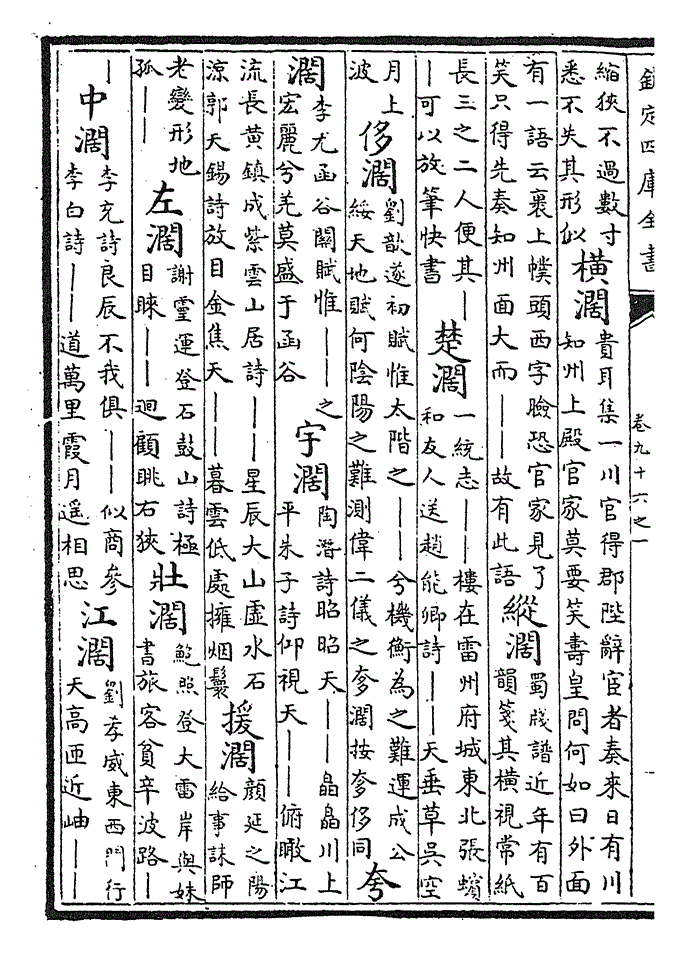 欽定四庫全書
卷九十六之一
縮狹不過數寸
悉不失其形似
橫濶
貴耳集一川官得郡陛辭宦者奏來日有川
知州上殿官家莫要笑壽皇問何如曰外面
有一語云裹上幞頭西字臉恐官家見了
笑只得先奏知州面大而——故有此語
縱濶
蜀牋譜近年有百
韻箋其橫視常紙
長三之二人便其—
—可以放筆快書
楚濶
一統志——樓在雷州府城東北張蠙
和友人送趙能卿詩——天垂草吳空
月上
波
侈濶
劉歆遂初賦惟太階之——兮機衡為之難運成公
綏天地賦何陰陽之難測偉二儀之奓濶按奓侈同
夸
濶
李尤函谷關賦惟——之
宏麗兮羌莫盛于函谷
宇濶
陶潛詩昭昭天——皛皛川上
平朱子詩仰視天——俯瞰江
流長黄鎮成紫雲山居詩——星辰大山虛水石
涼郭天錫詩放目金焦天——暮雲低處擁烟鬟
援濶
顔延之陽
給事誄師
老變形地
孤——
左濶
謝靈運登石鼓山詩極
目睞——迴顧眺右狹
壯濶
鮑照登大雷岸與妹
書旅客貧辛波路—
—
中濶
李充詩良辰不我俱——似商參
李白詩——道萬里霞月遥相思
江濶
劉孝威東西門行
天高匝近岫——